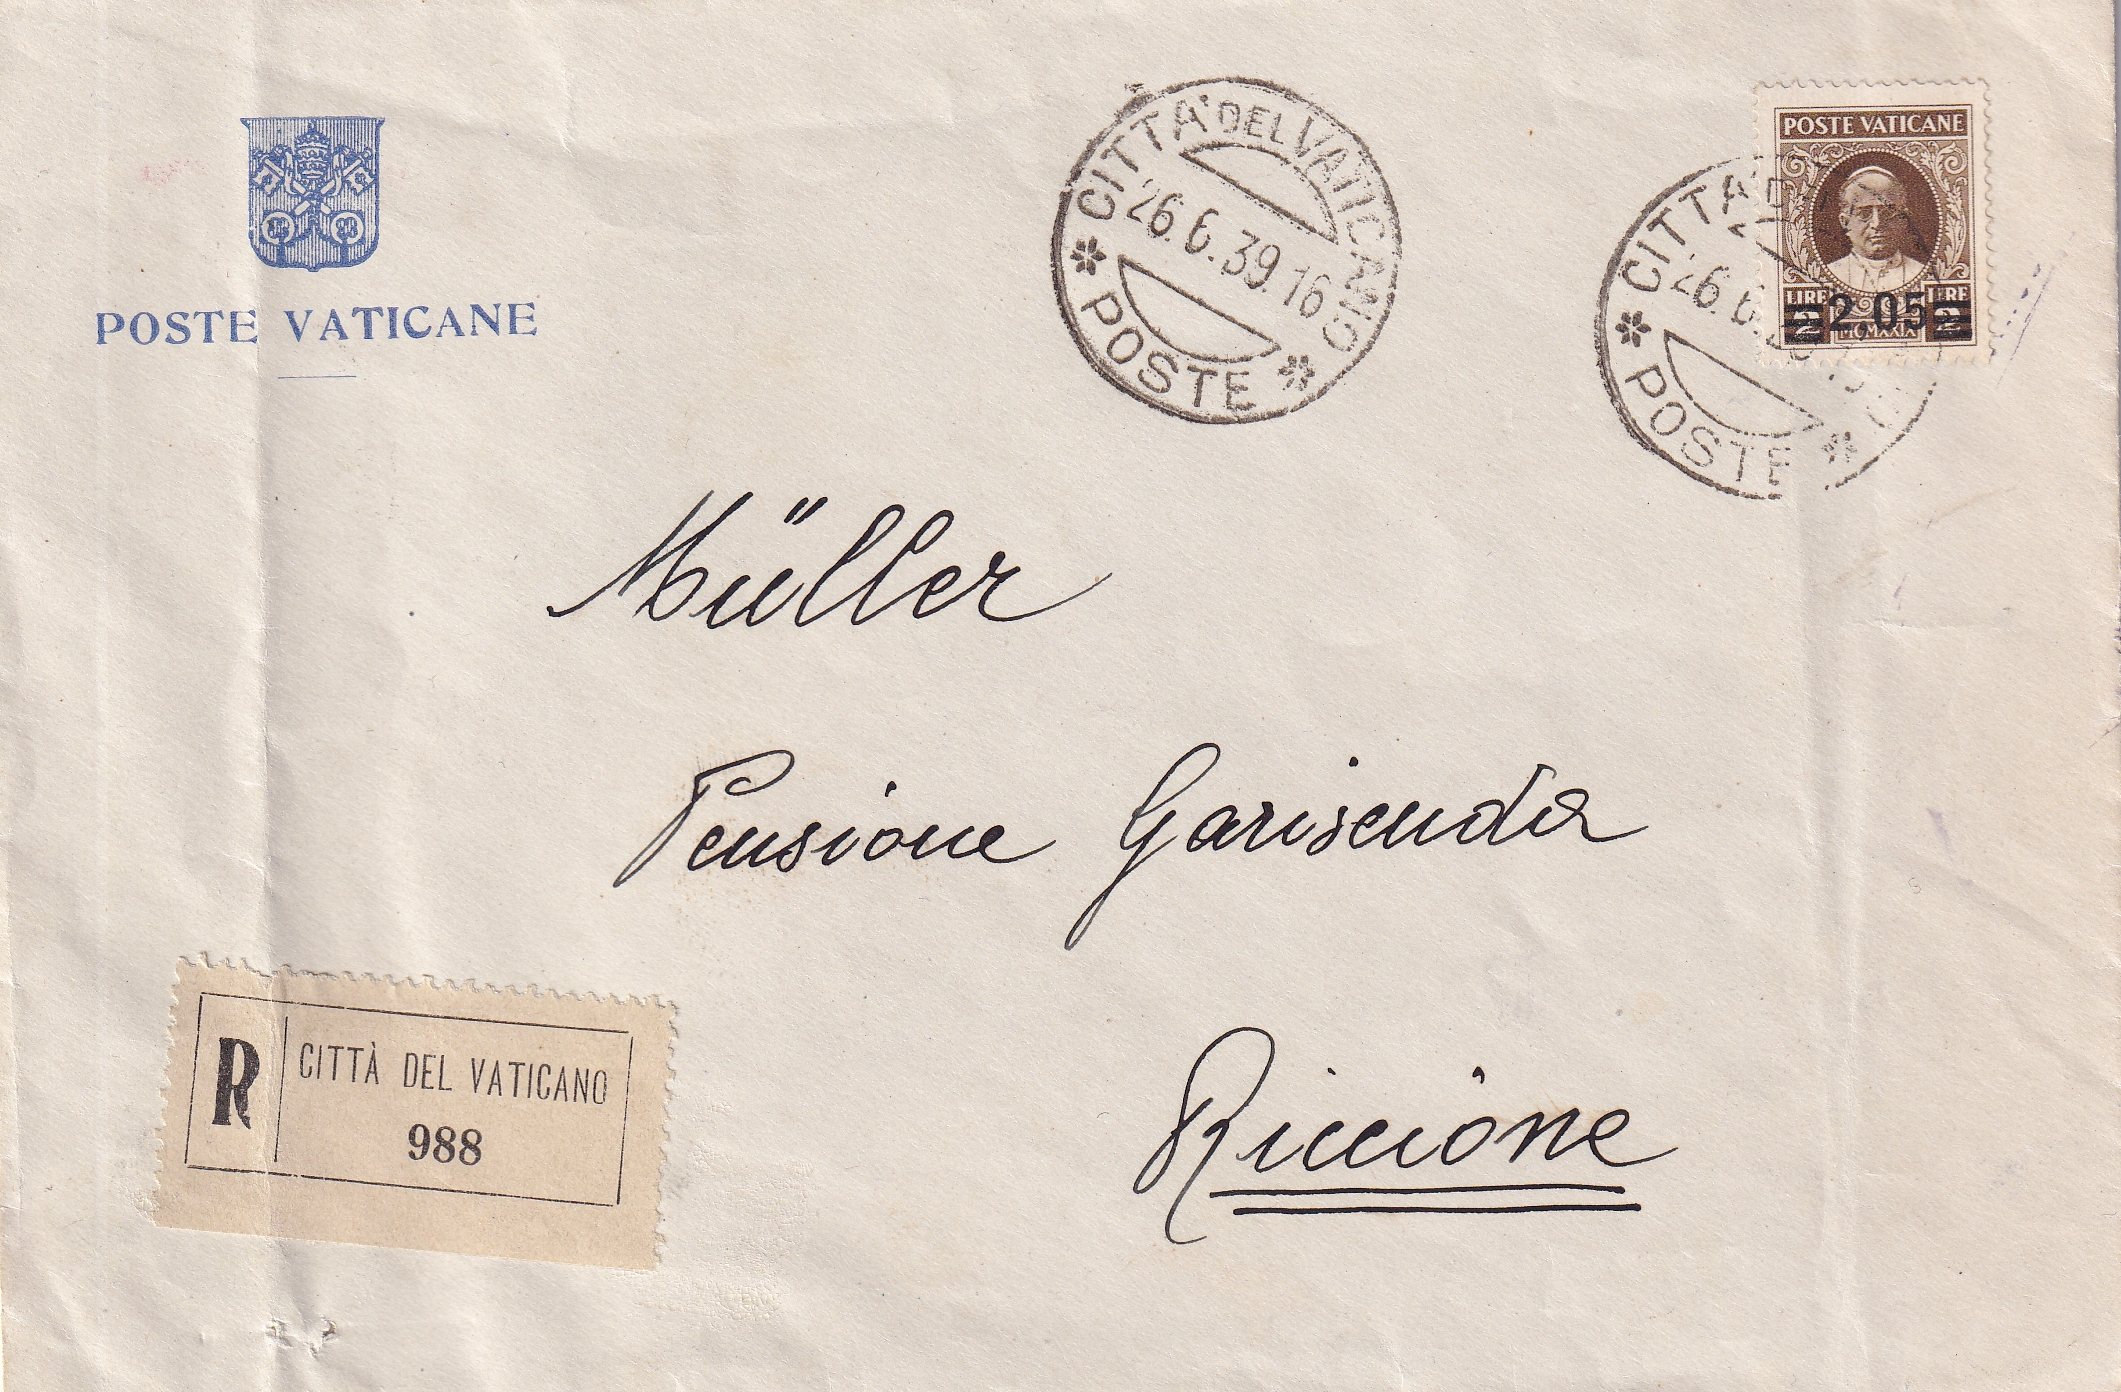 POSTE VATICANE
CITTA' DEL VATICANO
26.6.39.16
POSTE
POSTE VATICANE
LIRE 2 LIRE 2
2,05
MCMXXIX
CITTA'
26.6.
POSTE
Müller
Pensione Garisenda
Riccione
R
CITTÀ DEL VATICANO
988